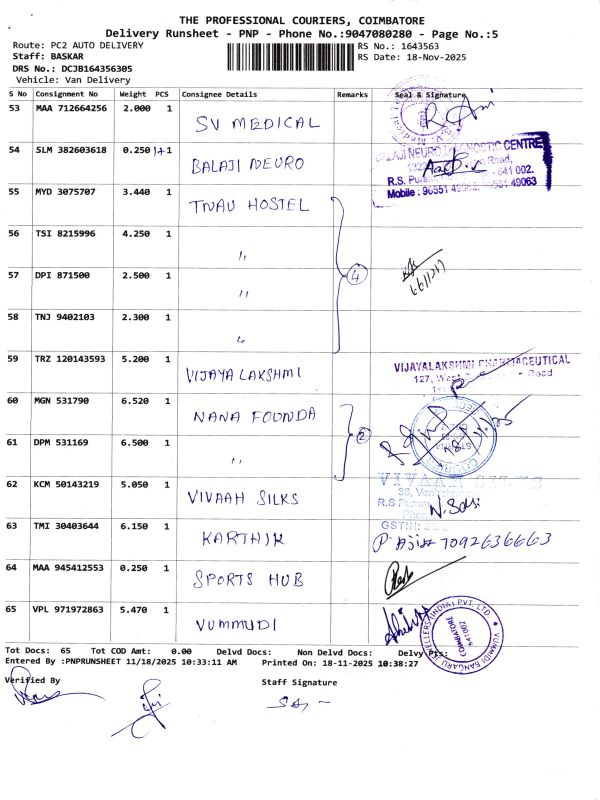 THE PROFESSIONAL COURIERS, COIMBATORE
Delivery Runsheet - PNP - Phone No.:9047080280 - Page No.:5
Route: PC2 AUTO DELIVERY
RS No.: 1643563
Staff: BASKAR
RS Date: 18-Nov-2025
DRS No.: DCJB164356305
Vehicle: Van Delivery
S No Consignment No Weight PCS Consignee Details Remarks Seal & Signature
53 MAA 712664256 2.000 1 SV MEDICAL
54 SLM 382603618 0.250 1+1 BALAJI NEURO
BALAJI NEURO DIAGNOSTIC CENTRE
Road,
R.S. Puram 641 002.
Mobile : 96551 49063
55 MYD 3075707 3.440 1 TNAU HOSTEL
56 TSI 8215996 4.250 1 "
57 DPI 871500 2.500 1 "
4
58 TNJ 9402103 2.300 1 "
59 TRZ 120143593 5.200 1 VIJAYA LAKSHMI
VIJAYALAKSHMI PHARMACEUTICAL
127, West Road
60 MGN 531790 6.520 1 NANA FOUNDA
2
18/11/25
61 DPM 531169 6.500 1 "
62 KCM 50143219 5.050 1 VIVAAH SILKS
VIVAAH SILKS
R.S Puram
GSTIN:
63 TMI 30403644 6.150 1 KARTHIK
7092636663
64 MAA 945412553 0.250 1 SPORTS HUB
65 VPL 971972863 5.470 1 VUMMUDI
VUMMIDI BANGARU JEWELLERS (INDIA) PVT. LTD.
COIMBATORE
641002
Tot Docs: 65 Tot COD Amt: 0.00 Delvd Docs: Non Delvd Docs: Delvy Pts:
Entered By :PNPRUNSHEET 11/18/2025 10:33:11 AM Printed On: 18-11-2025 10:38:27
Verified By
Staff Signature